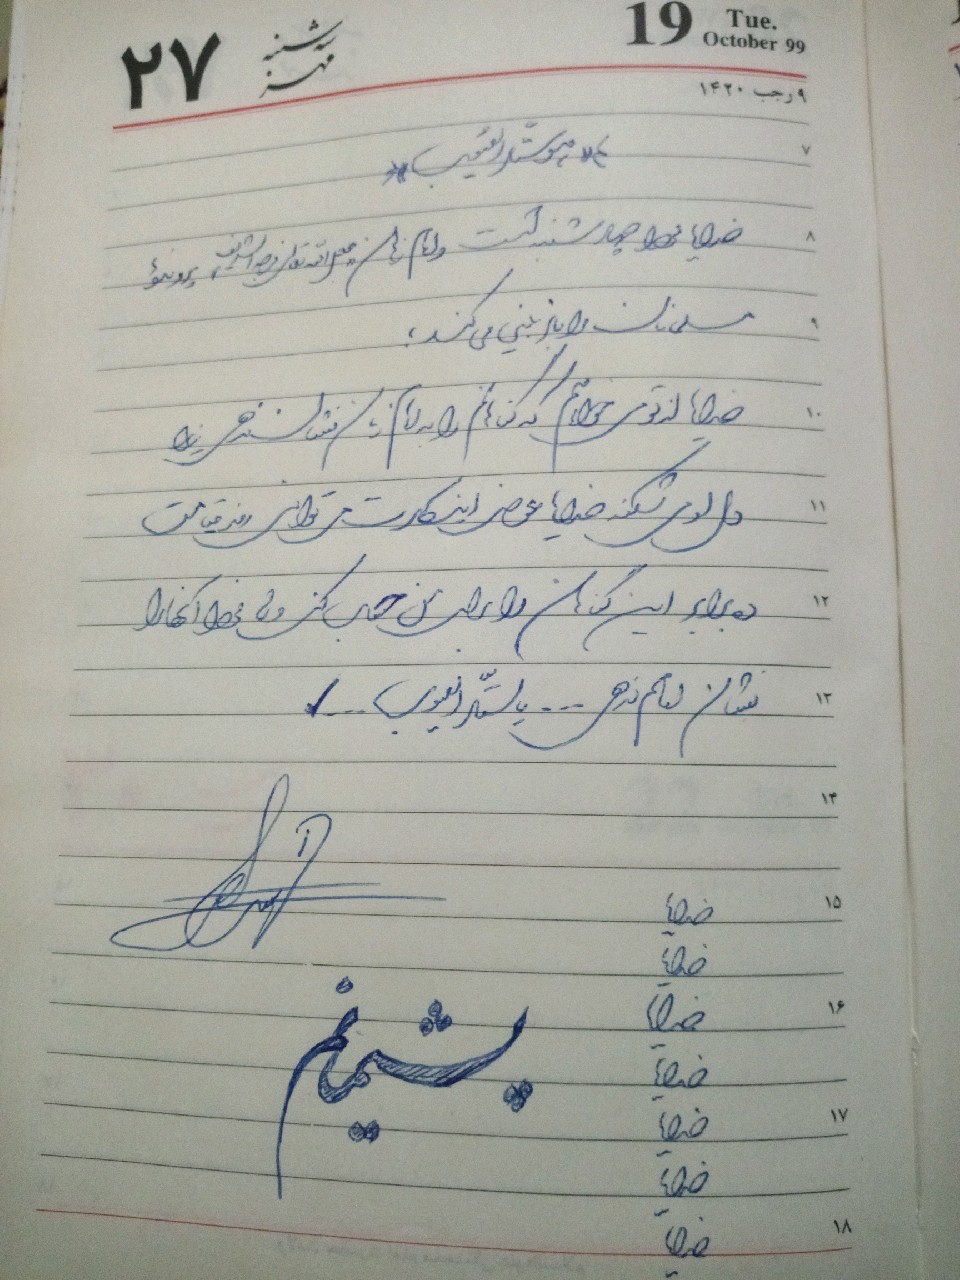 ۲۷ سه‌شنبه مهر 19 Tue. October 99
۹ رجب ۱۴۲۰
۷ هو ستار العیوب
۸ خدایا فردا چهارشنبه است و امام زمان عجل الله تعالی فرجه الشریف پرونده‌ها
۹ مسلمانان را بازبینی می‌کند؛
۱۰ خدایا از تو می‌خواهم که گناهانم را به امام زمان نشان ندهی زیرا
۱۱ دل او می‌شکند خدایا عوض اینکارت می‌توانی روز قیامت
۱۲ ده برابر این گناهان را برای من حساب کنی ولی فردا آنها را
۱۳ نشان امام ندهی --- یا ستار العیوب ---
۱۴
۱۵ خدایا
خدایا
۱۶ خدایا
خدایا
پشیمانم
۱۷ خدایا
خدایا
۱۸ خدایا